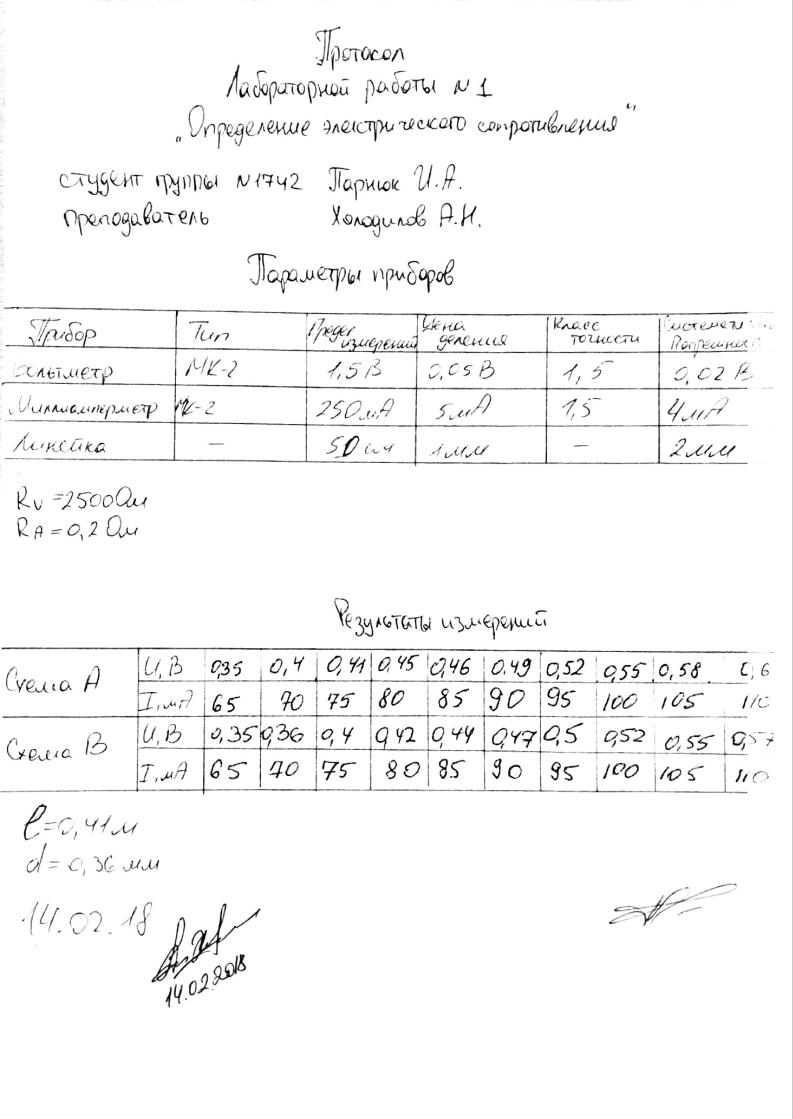 Протокол
Лабораторной работы №1
„Определение электрического сопротивления"
студент группы №1742 Парнюк И.А.
преподаватель Холодилов А.Н.
Параметры приборов
Прибор Тип Предел измерений Цена деления Класс точности
МК-2 1,5В 0,05В 1,5 0,02В
Миллиамперметр МК-2 250мА 5мА 1,5 4мА
Линейка — 50см 1мм — 2мм
RV=2500Ом
RA=0,2Ом
Результаты измерений
Схема А U,В 0,35 0,4 0,41 0,45 0,46 0,49 0,52 0,55 0,58 0,6
I,мА 65 70 75 80 85 90 95 100 105 110
Схема В U,В 0,35 0,36 0,4 0,42 0,44 0,47 0,5 0,52 0,55 0,57
I,мА 65 70 75 80 85 90 95 100 105 110
l=0,41м
d=0,36мм
14.02.18
14.02.2018